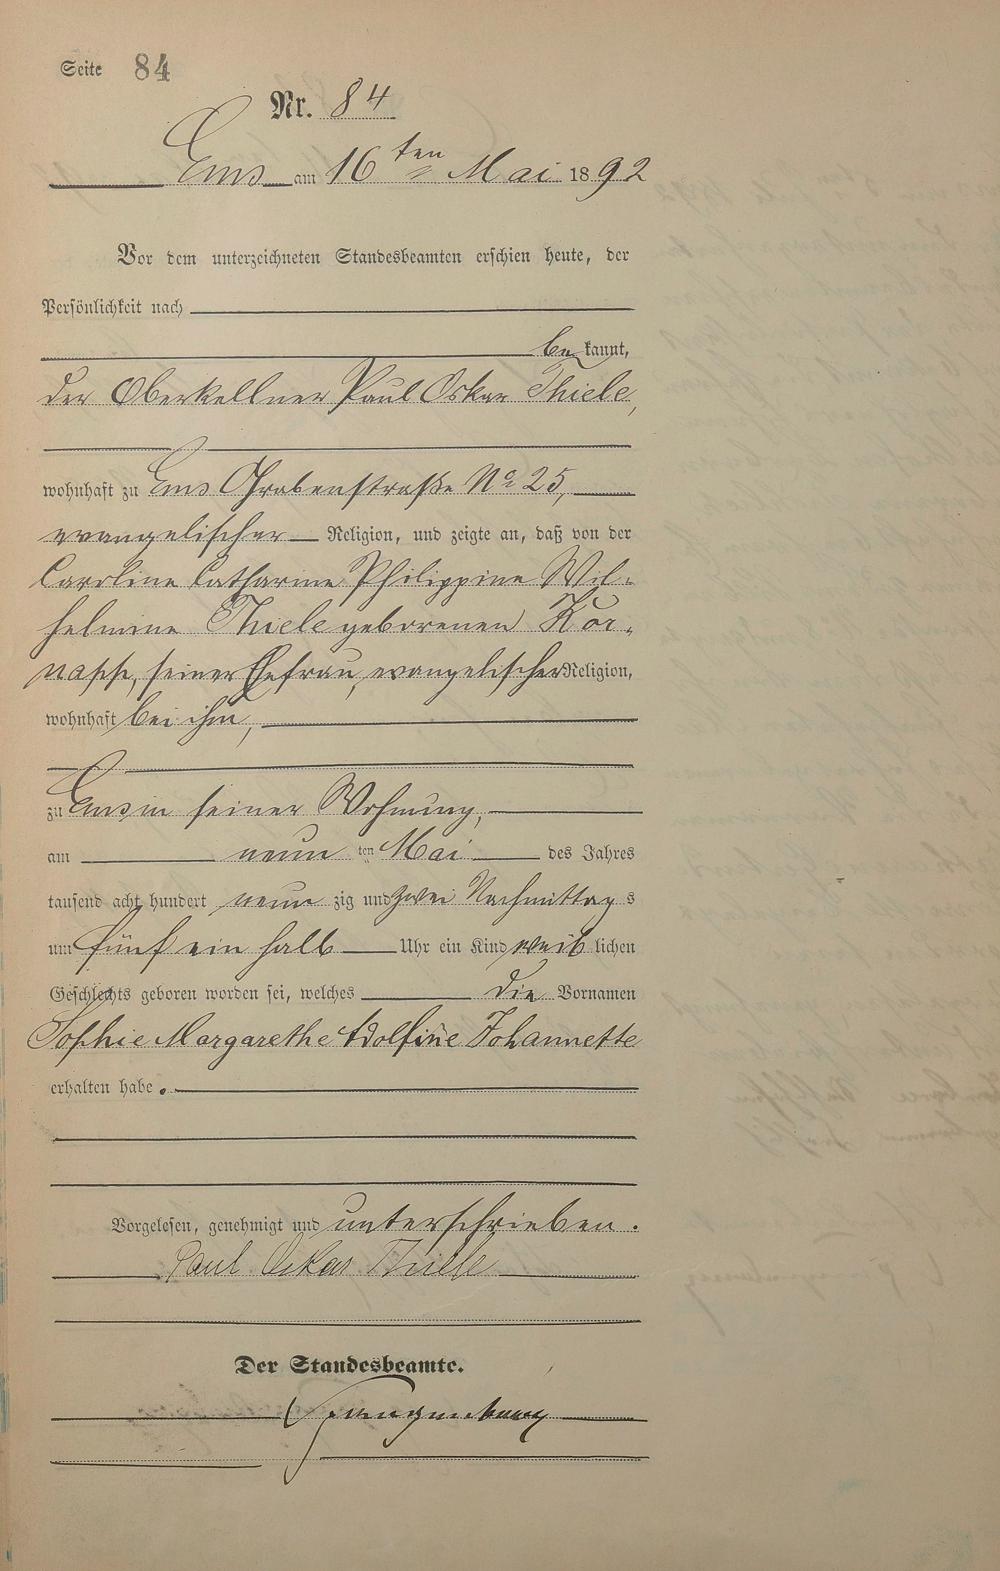 Seite 84
Nr. 84
Ems am 16ten Mai 1892
Vor dem unterzeichneten Standesbeamten erschien heute, der
Persönlichkeit nach
bekannt,
der Oberkellner Paul Oskar Thiele,
wohnhaft zu Ems Grabenstraße No 25,
evangelischer Religion, und zeigte an, daß von der
Caroline Catharine Philippine Wil-
helmine Thiele geborenen Kor-
napp, seiner Ehefrau, evangelischer Religion,
wohnhaft bei ihm,
zu Ems in seiner Wohnung,
am neun ten Mai des Jahres
tausend acht hundert neun zig und zwei Nachmittag s
um fünf ein halb Uhr ein Kind weib lichen
Geschlechts geboren worden sei, welches die Vornamen
Sophie Margarethe Adolfine Johannette
erhalten habe.
Vorgelesen, genehmigt und unterschrieben.
Paul Oskar Thiele
Der Standesbeamte.